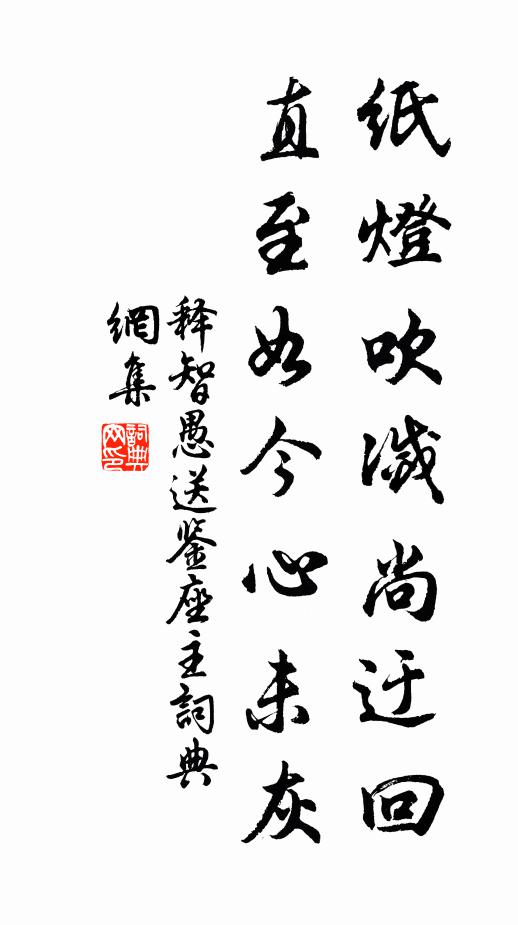 紙燈吹滅尚迂回
直至如今心未灰
释智愚送鉴座主詞典
網集
詞典网印